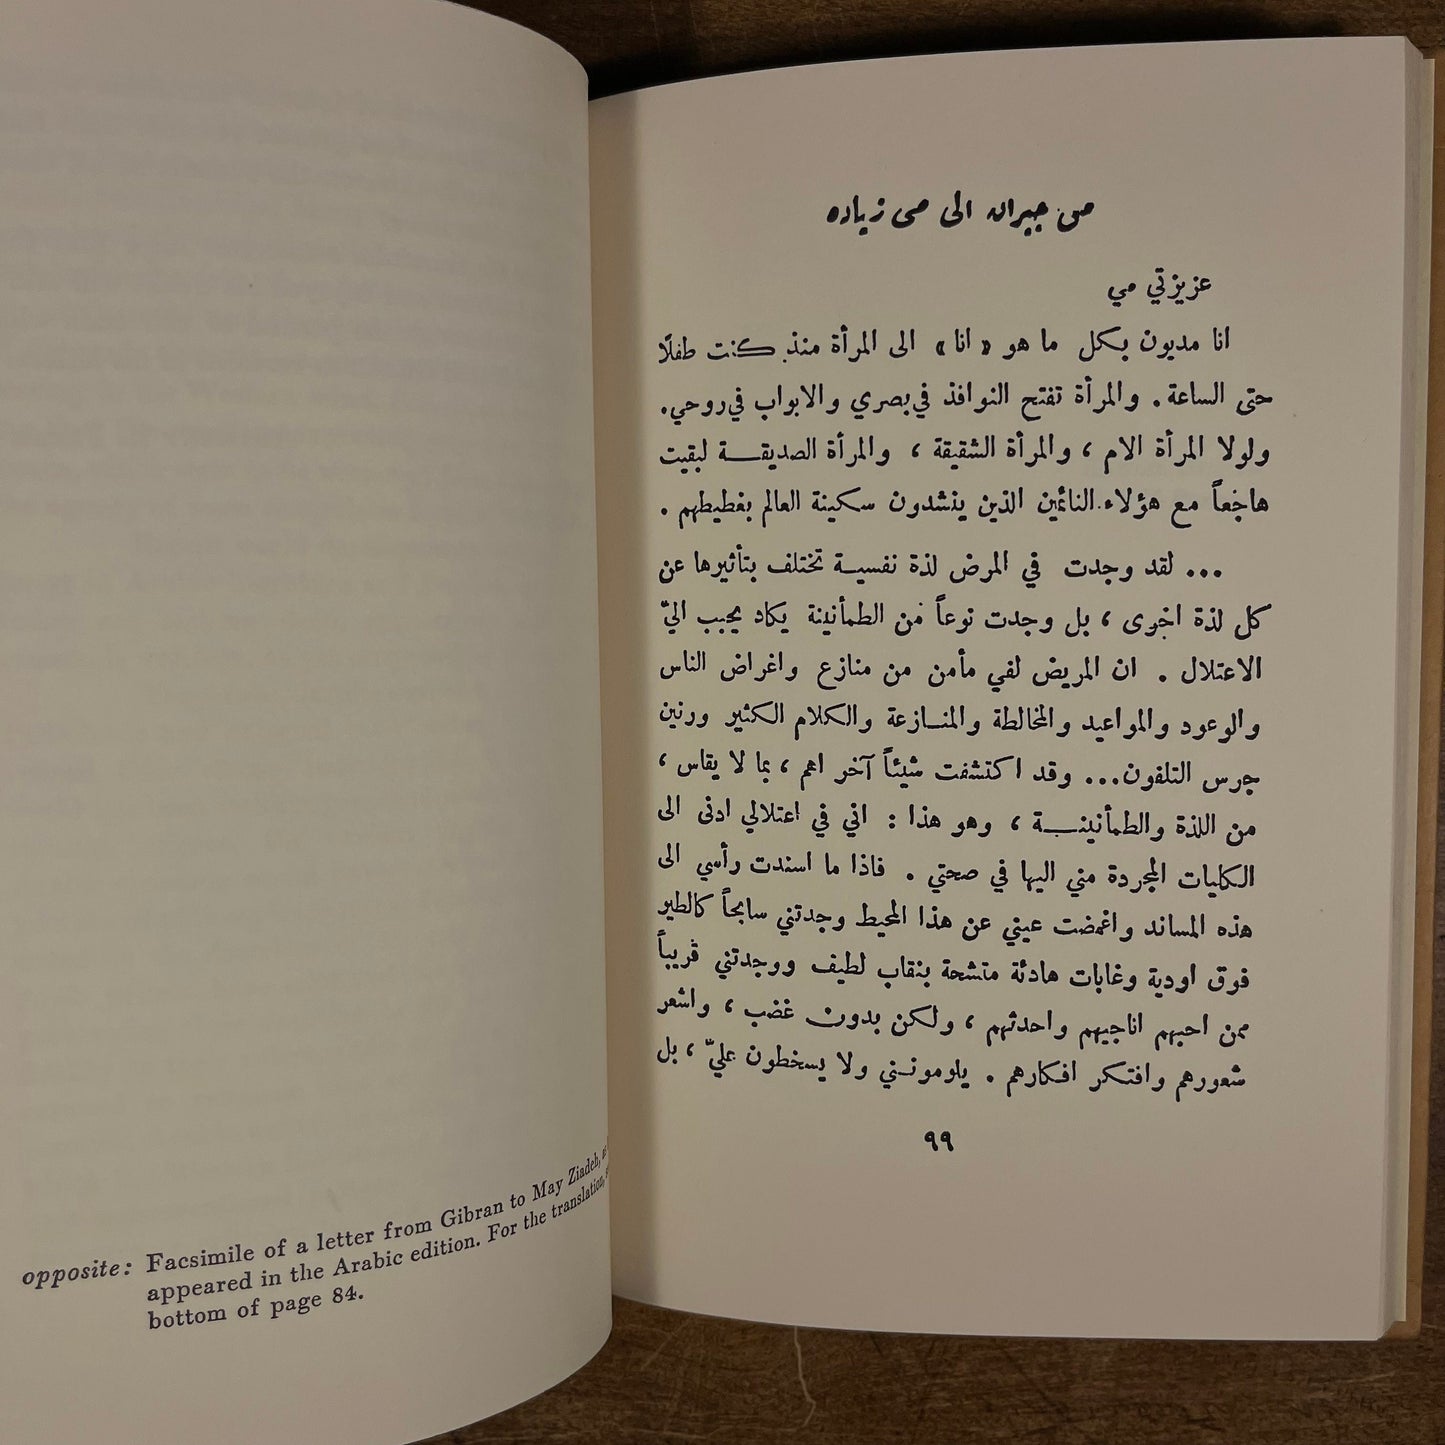 opposite: Facsimile of a letter from Gibran to May Ziadeh,
appeared in the Arabic edition. For the translation,
bottom of page 84.
من جبران الى مي زياده
عزيزتي مي
انا مديون بكل ما هو « انا » الى المرأة منذ كنت طفلًا
حتى الساعة . والمرأة تفتح النوافذ في بصري والابواب في روحي.
ولولا المرأة الام ، والمرأة الشقيقة ، والمرأة الصديقة لبقيت
هاجعاً مع هؤلاء النائمين الذين ينشدون سكينة العالم بغطيطهم .
... لقد وجدت في المرض لذة نفسية تختلف بتأثيرها عن
كل لذة اخرى ، بل وجدت نوعاً من الطمأنينة يكاد يحبب اليّ
الاعتلال . ان المريض لفي مأمن من منازع واغراض الناس
والوعود والمواعيد والمخالطة والمنازعة والكلام الكثير ورنين
جرس التلفون... وقد اكتشفت شيئاً آخر اهم ، بما لا يقاس ،
من اللذة والطمأنينة ، وهو هذا : اني في اعتلالي ادنى الى
الكليات المجردة مني اليها في صحتي . فاذا ما اسندت رأسي الى
هذه المساند واغمضت عيني عن هذا المحيط وجدتني سابحاً كالطير
فوق اودية وغابات هادئة متشحة بنقاب لطيف ووجدتني قريباً
ممن احبهم اناجيهم واحدثهم ، ولكن بدون غضب ، واشعر
شعورهم وافتكر افكارهم . يلومونني ولا يسخطون عليّ ، بل
٩٩